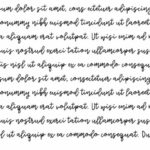 sum dolor sit amet, cons ectetuer adipiscing
nonummy nibh euismod tincidunt ut laoreet
a aliquam erat volutpat. Ut wisi enim ad
uis nostrud exerci tation ullamcorper sus
t ut aliquip ex ea commodo consequat.
sum dolor sit amet, consectetuer adipiscin
nonummy nibh euismod tincidunt ut laoreet
a aliquam erat volutpat. Ut wisi enim ad
uis nostrud exerci tation ullamcorper susc
t ut aliquip ex ea commodo consequat. Du